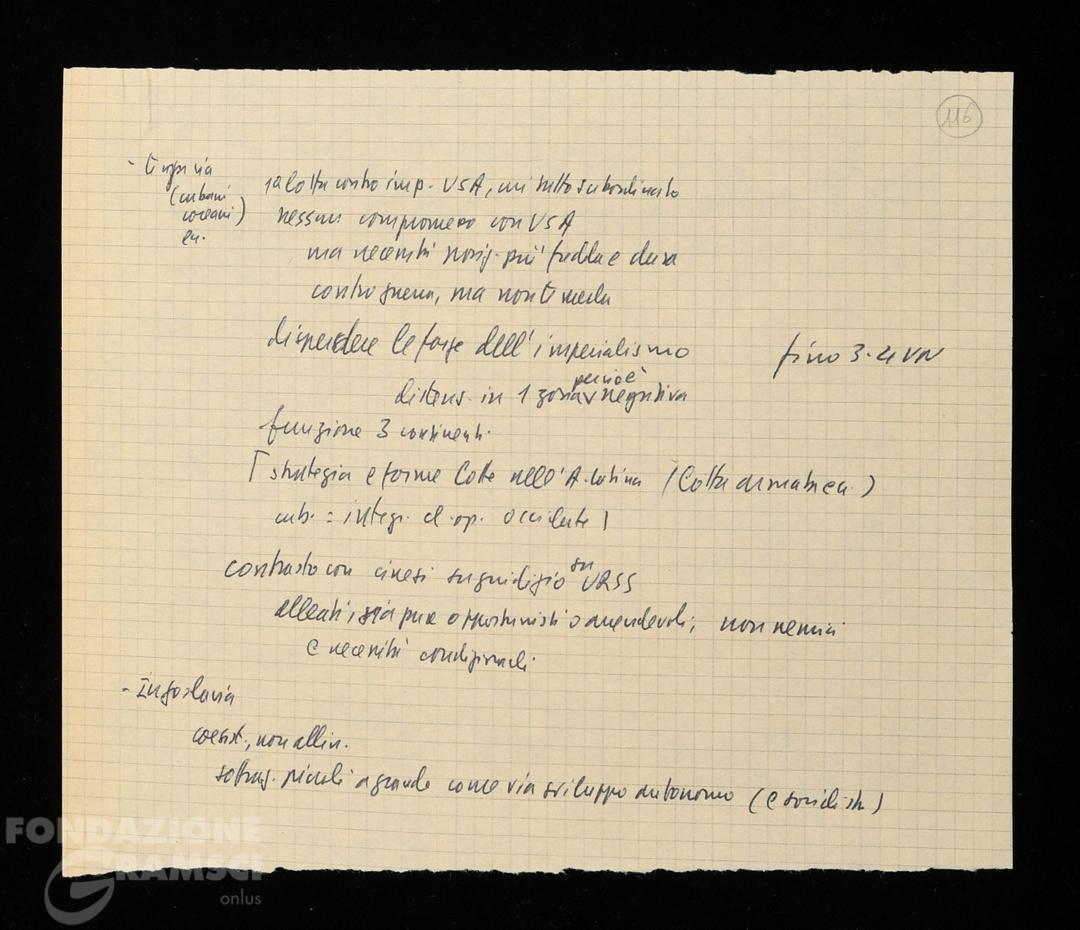 116
- III via
(cubani
coreani)
ecc.
la lotta contro imp. USA, cui tutto subordinato
nessun compromesso con USA
ma necessità più fredda e dura
contro guerra, ma non temerla
disperdere le forze dell'imperialismo
fino 3-4 VN
distens. in 1 zona perciò è negativa
funzione 3 continenti
[strategia e forme lotte nell'A. latina (lotta armata ecc.)
cub. = integr. cl. op. occidente]
contrasto con cinesi su giudizio su URSS
alleati, sia pure opportunisti o arrendevoli, non nemici
e necessità condizionarli
- Iugoslavia
coesist., non allin.
piccoli a grande come via sviluppo autonomo (e socialista)
FONDAZIONE
GRAMSCI
onlus